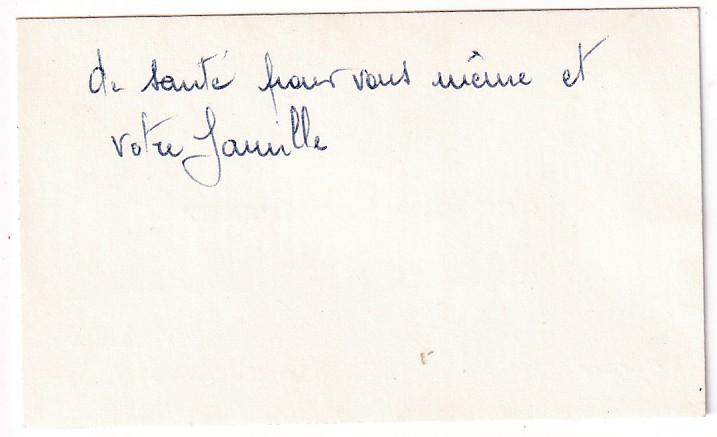 de santé pour vous même et
votre famille